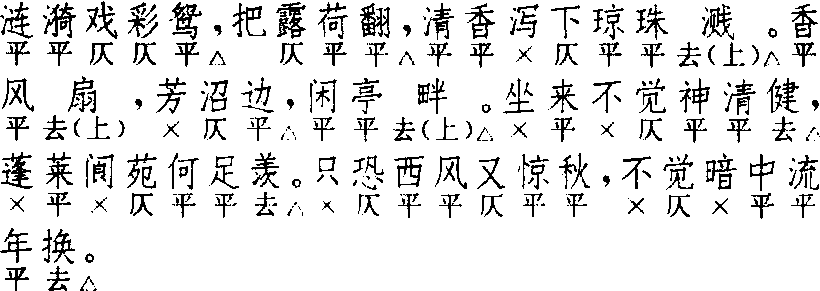 涟漪戏彩鸳，把露荷翻，清香泻下琼珠溅。香
平平仄仄平△ 仄平平△平平×仄平平去(上)△平
风扇，芳沼边，闲亭畔。坐来不觉神清健，
平去(上) ×仄平△平平去(上)△×平×仄平平去△
蓬莱阆苑何足羡。只恐西风又惊秋，不觉暗中流
×平×仄平平去△×仄平平仄平平 ×仄×平平
年换。
平去△